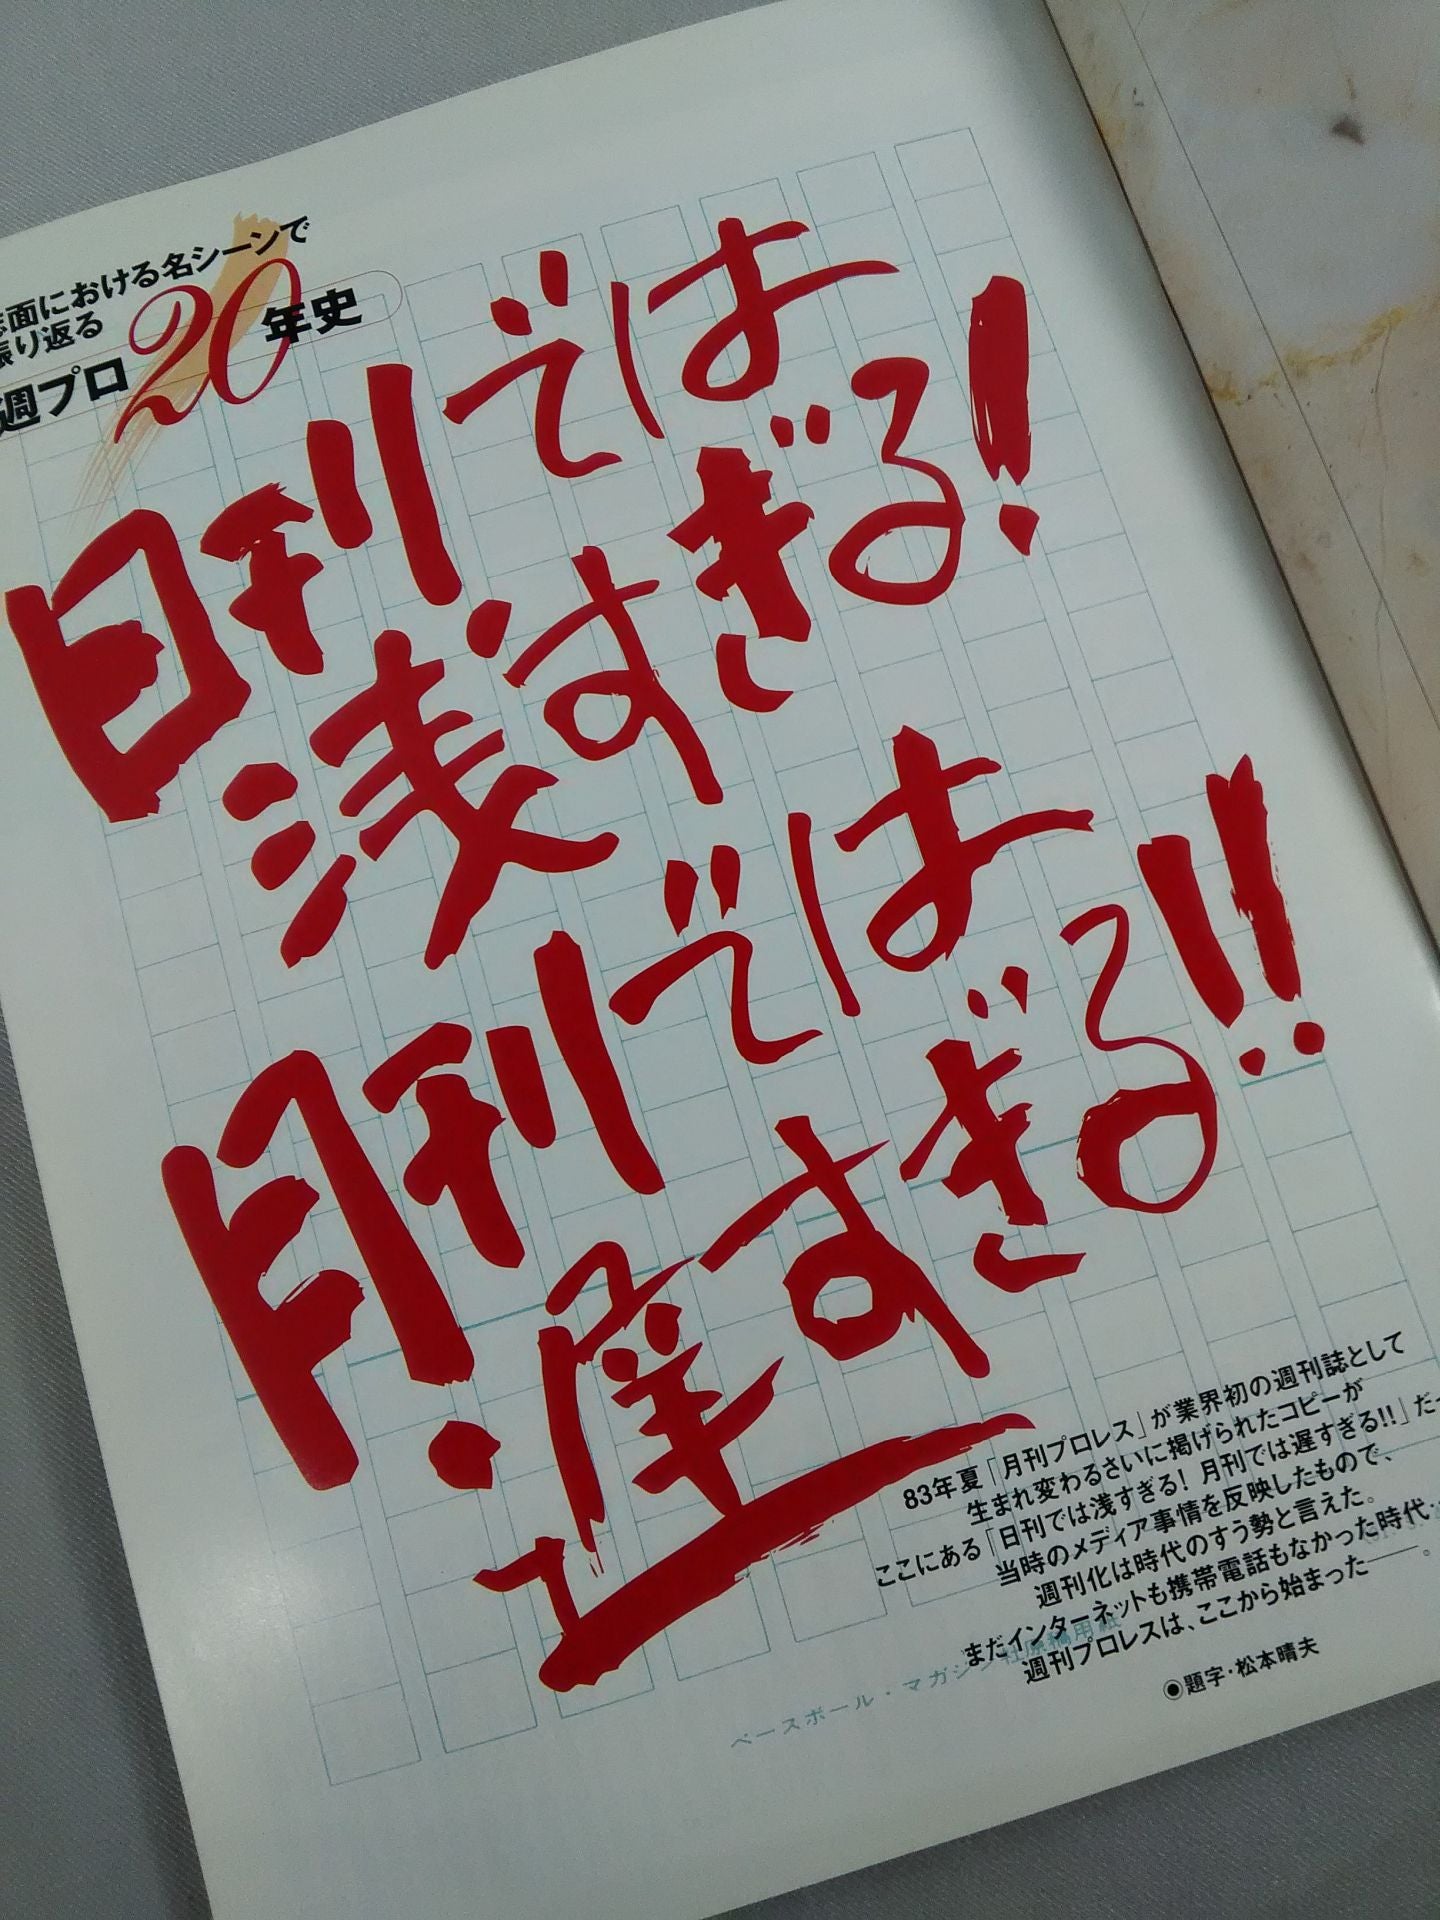 誌面における名シーンで
振り返る
週プロ20年史
日刊では
浅すぎる!
月刊では
遅すぎる!!
83年夏「月刊プロレス」が業界初の週刊誌として
生まれ変わるさいに掲げられたコピーが
ここにある「日刊では浅すぎる! 月刊では遅すぎる!!」だ
当時のメディア事情を反映したもので、
週刊化は時代のすう勢と言えた。
まだインターネットも携帯電話もなかった時代
週刊プロレスは、ここから始まった──。
◉題字・松本晴夫
ベースボール・マガジン社原稿用紙